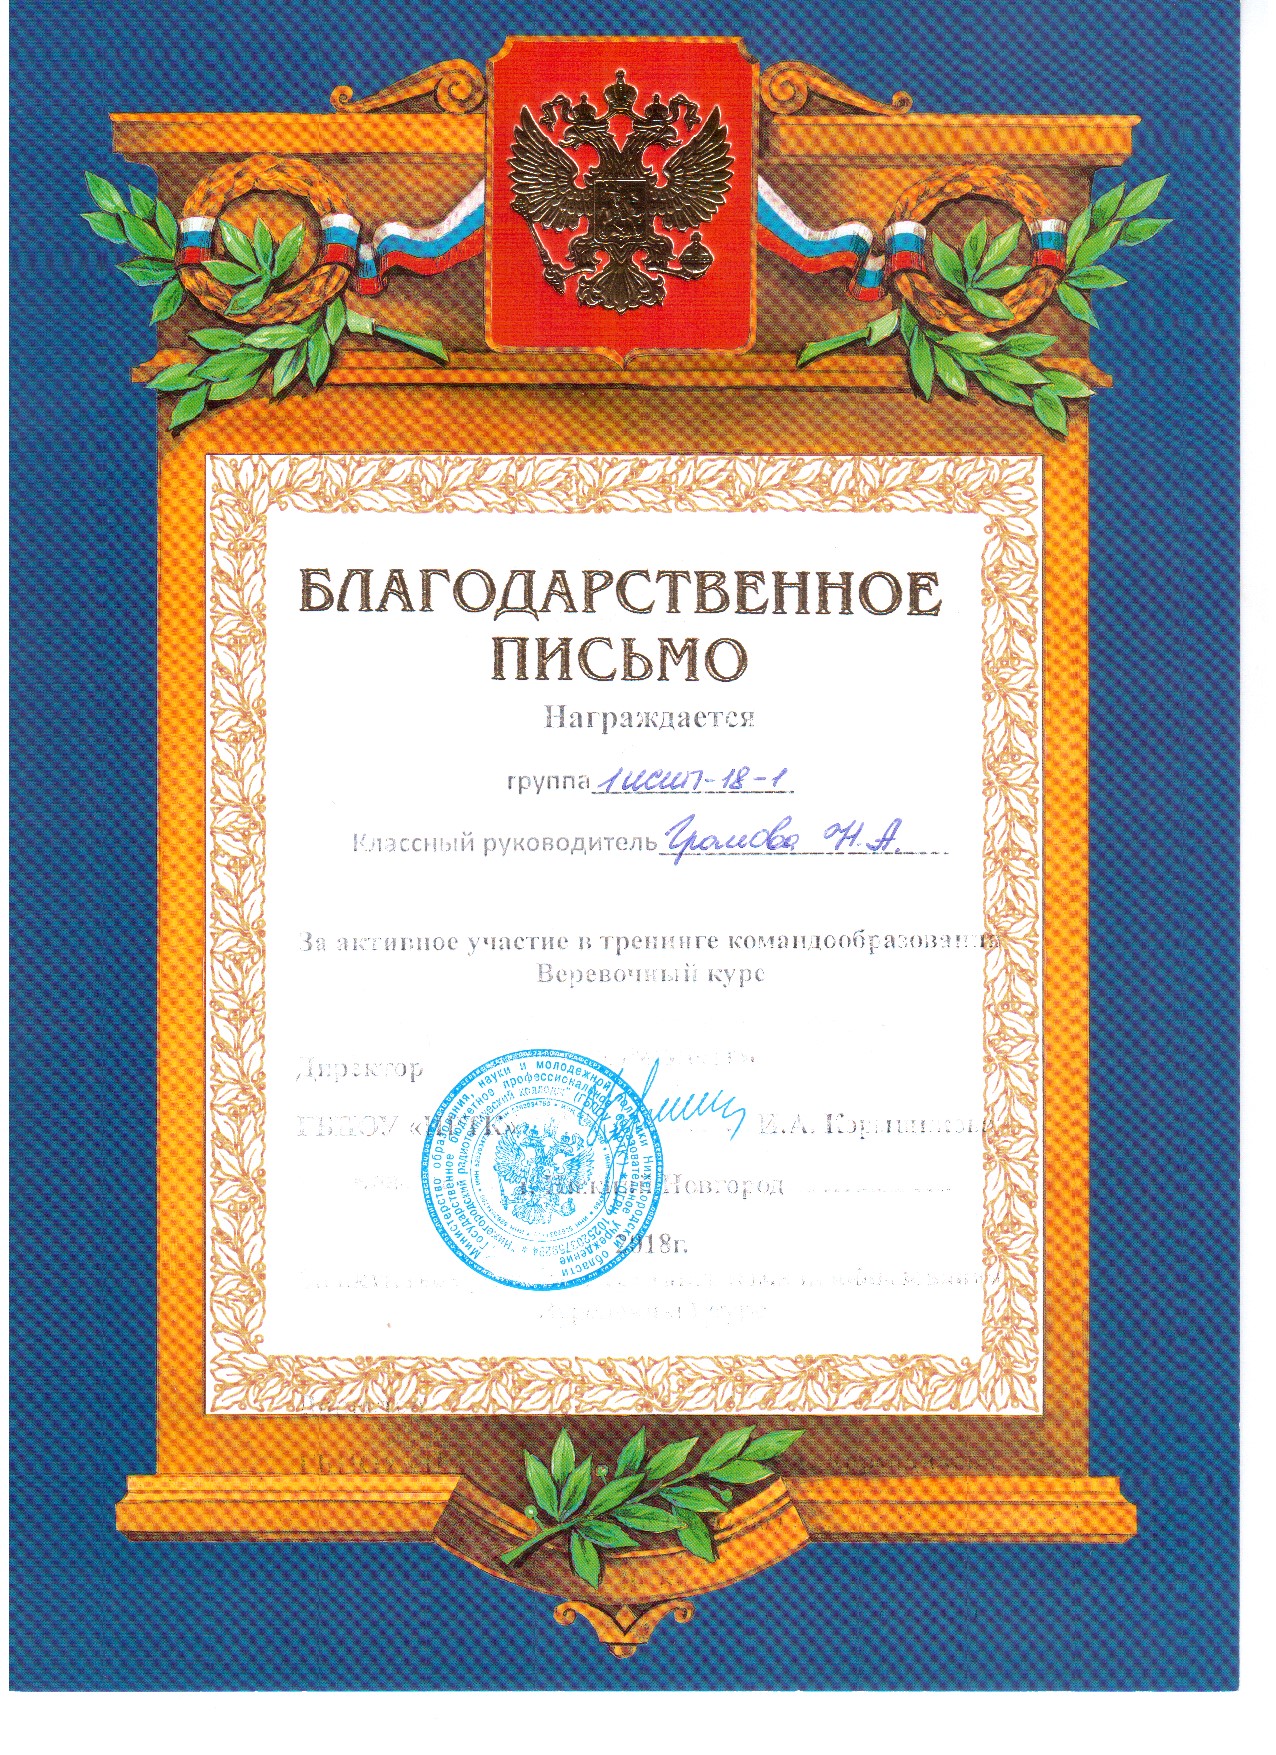 БЛАГОДАРСТВЕННОЕ
ПИСЬМО
Награждается
группа 1ИСИП-18-1
Классный руководитель Громова Н.А.
За активное участие в тренинге командообразования
Веревочный курс
Директор
И.А.
Новгород
2018г.
Министерство образования, науки и молодежной политики Нижегородской области
Государственное бюджетное профессиональное образовательное учреждение
"Нижегородский радиотехнический колледж"